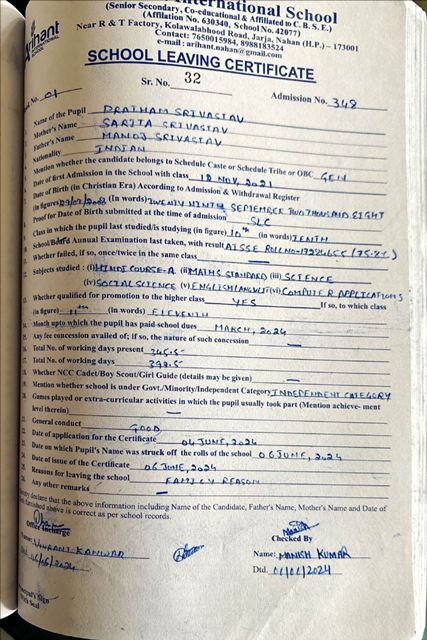 International School
(Senior Secondary, Co-educational & Affiliated to C. B. S. E.)
(Affiliation No. 630340, School No. 42077)
Near R & T Factory, Kolawalabhood Road, Jarja, Nahan (H.P.) - 173001
Contact: 7650015984, 8988183524
e-mail: arihant.nahan@gmail.com
Arihant
SCHOOL LEAVING CERTIFICATE
No. 01 Sr. No. 32 Admission No. 348
Name of the Pupil PRATHAM SRIVASTAV
Mother's Name SARITA SRIVASTAV
Father's Name MANOJ SRIVASTAV
Nationality INDIAN
Mention whether the candidate belongs to Schedule Caste or Schedule Tribe or OBC GEN
Date of first Admission in the School with class 18 NOV, 2021
Date of Birth (in Christian Era) According to Admission & Withdrawal Register
(in figure) (In words) TWENTY NINTH SEPTEMBER TWO THOUSAND EIGHT
Proof for Date of Birth submitted at the time of admission SLC
Class in which the pupil last studied/is studying (in figure) 10th (in words) TENTH
School/Board Annual Examination last taken, with result AISSE ROLL NO- (75.2%)
Whether failed, if so, once/twice in the same class —
Subjects studied: (i) HINDI COURSE-A (ii) MATHS STANDARD (iii) SCIENCE
(iv) SOCIAL SCIENCE (v) ENGLISH LANG/LIT (vi) COMPUTER APPLICATIONS
Whether qualified for promotion to the higher class YES If so, to which class
(in figure) 11th (in words) ELEVENTH
Month upto which the pupil has paid-school dues MARCH, 2024
Any fee concession availed of; if so, the nature of such concession —
Total No. of working days present
Total No. of working days
Whether NCC Cadet/Boy Scout/Girl Guide (details may be given) —
Mention whether school is under Govt./Minority/Independent Category INDEPENDENT CATEGORY
Games played or extra-curricular activities in which the pupil usually took part (Mention achieve- ment
level therein) —
General conduct GOOD
Date of application for the Certificate 04 JUNE, 2024
Date on which Pupil's Name was struck off the rolls of the school 06 JUNE, 2024
Date of issue of the Certificate 06 JUNE, 2024
Reasons for leaving the school FAMILY REASON
Any other remarks —
declare that the above information including Name of the Candidate, Father's Name, Mother's Name and Date of
furnished above is correct as per school records.
Office Incharge Checked By
KANWAR Name: MANISH KUMAR
Dtd.
Principal's Sign
with Seal